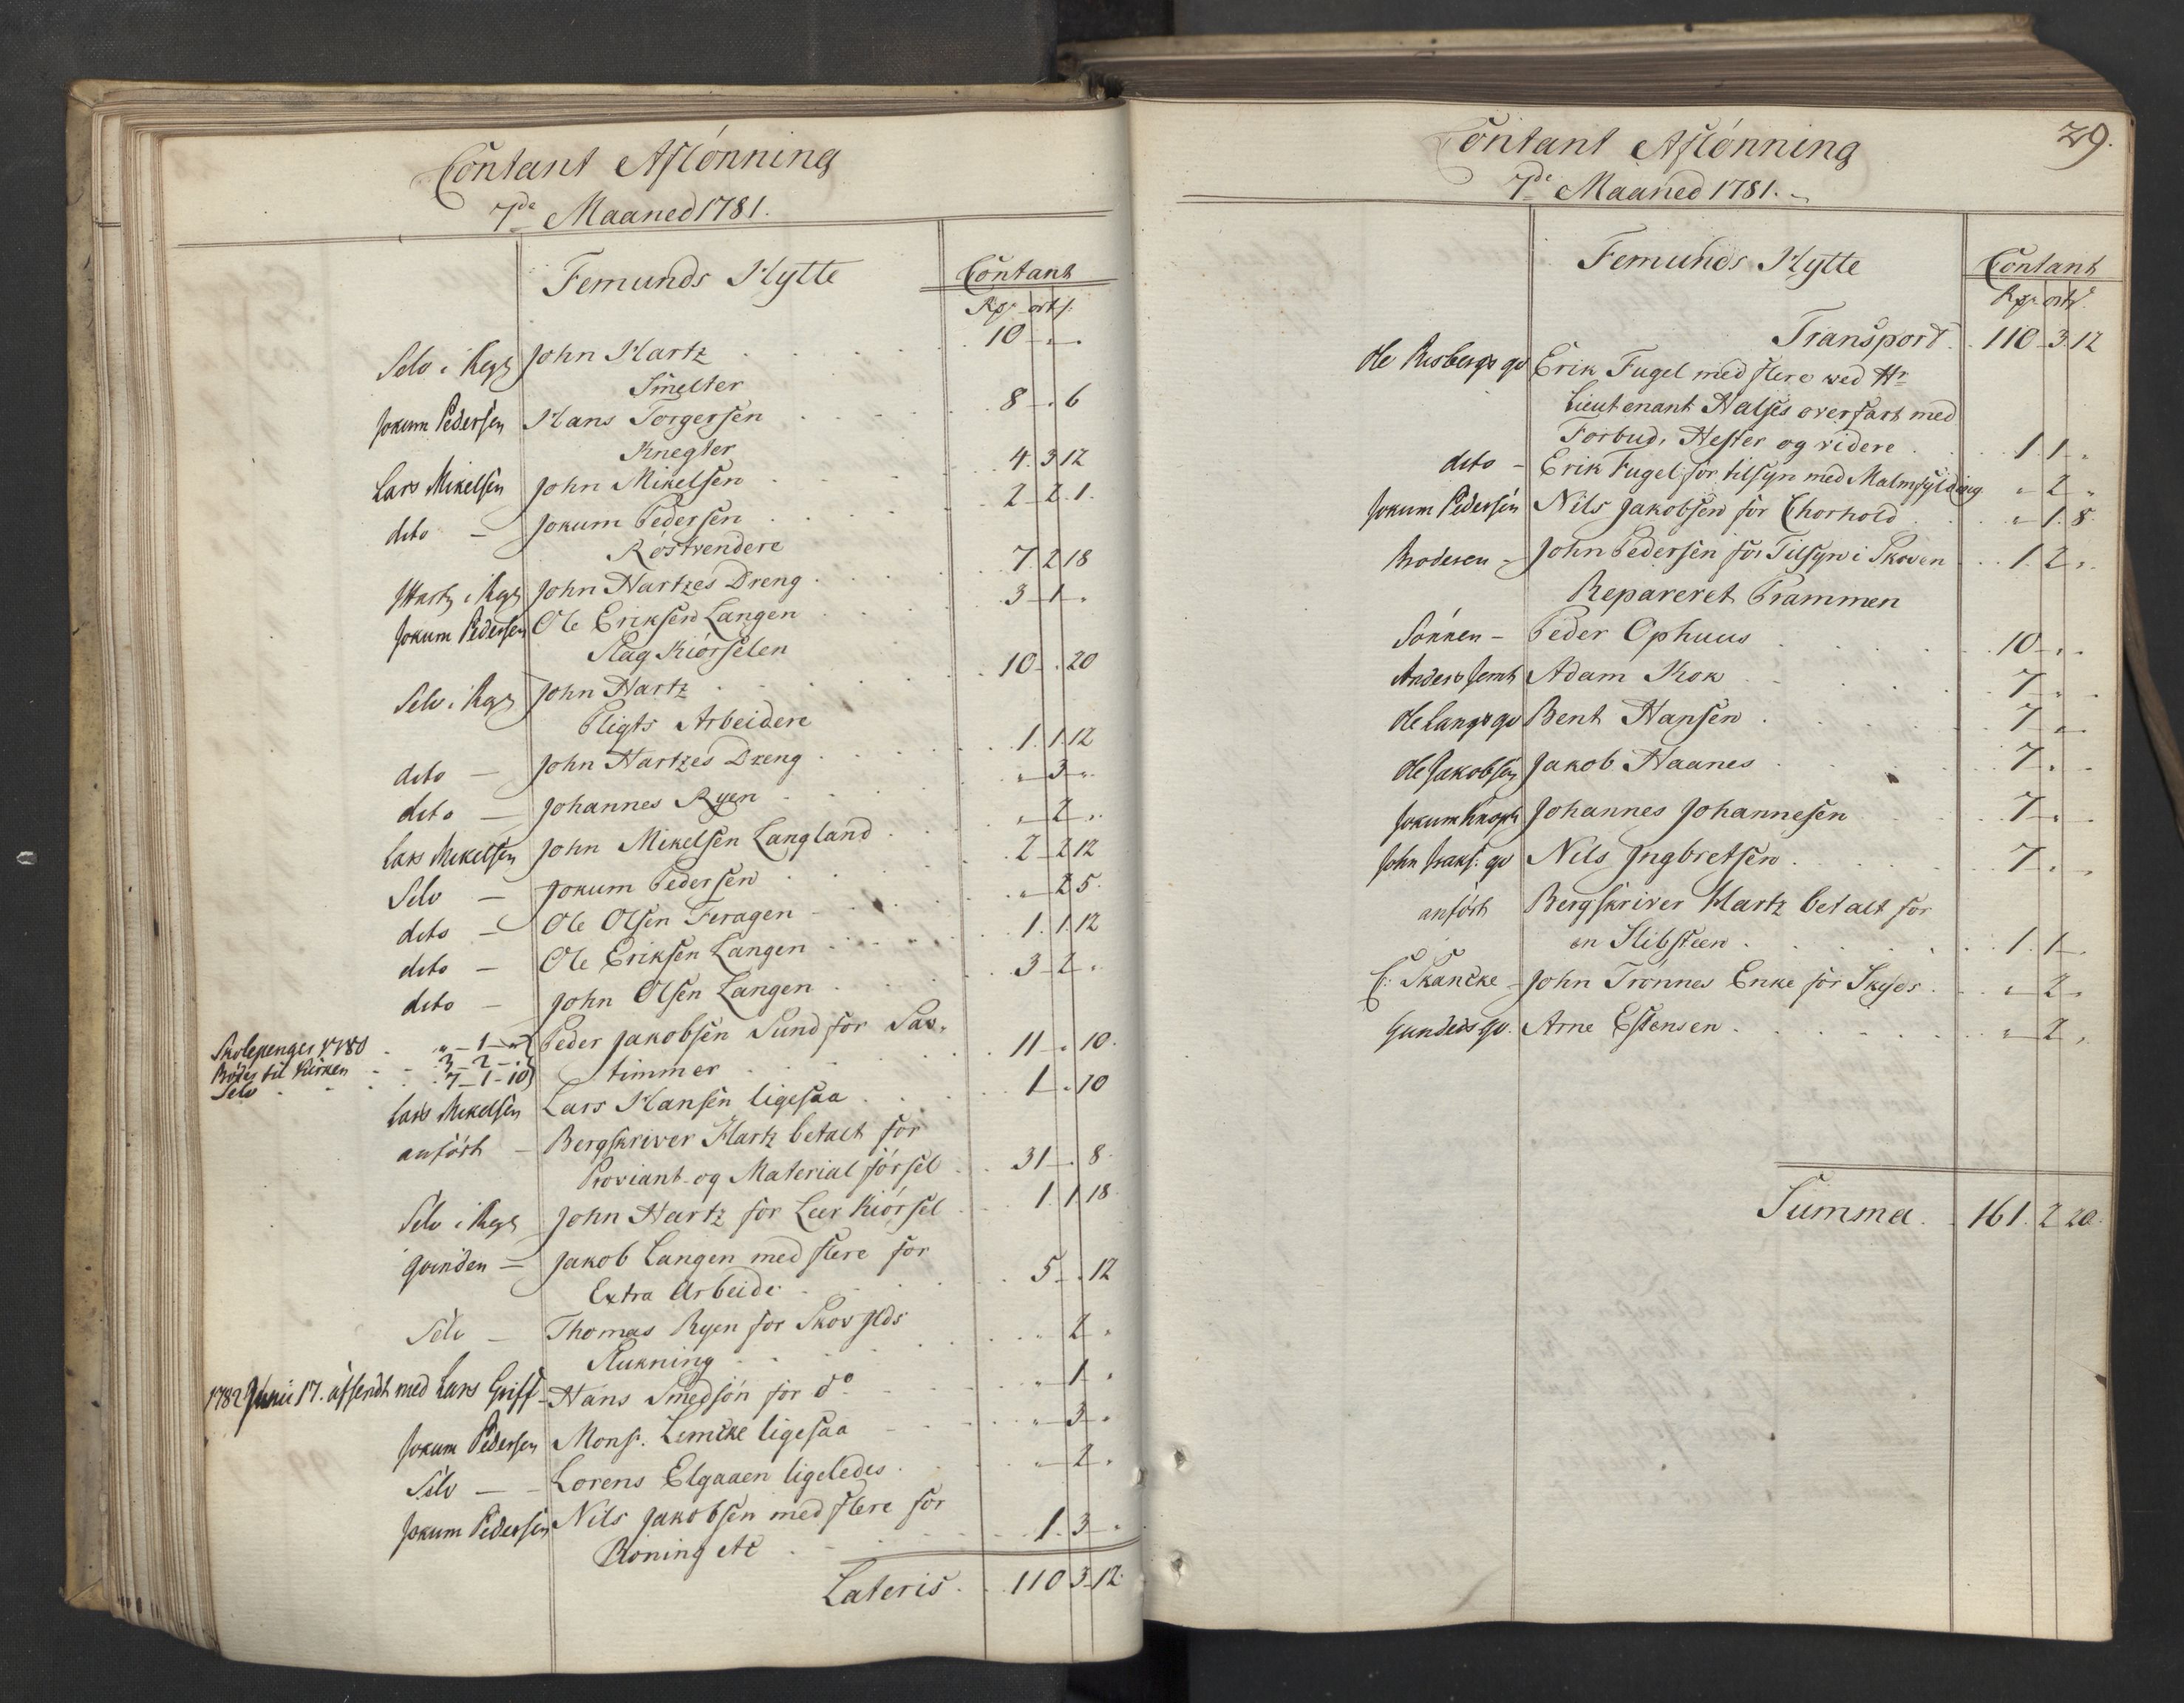 Contant Aflönning
7de Maaned 1781.
Femunds Hytte Contant
Rp ort s.
Selv i Regs John Hartz 10 - " - "
Smelter
Jokum Pedersen Hans Torgersen 8 - " 6
Knegter
Lars Mikelsen John Mikelsen 4. 3 12
dito - Jokum Pedersen 2 - 2. 1.
Röstvendere
JHartz i Regs John Hartzes Dreng 7. 2 18
Jokum Pedersen Ole Eriksen Langen 3 - 1 - "
Slag Kiörselen
Selv i Regs John Hartz 10 - " 20
Pligts Arbeidere
dito - John Hartzes Dreng 1. 1. 12
dito - Johannes Ryen " - 3 - "
Lars Mikelsen John Mikelsen Langland " - 2 - "
Selv - Jokum Pedersen 2 - 2 12
dito - Ole Olsen Feragen " - 2 5.
dito - Ole Eriksen Langen 1. 1. 12
dito - John Olsen Langen 3 - 2 - "
Skolepenger 1780 " - 1 - " Peder Jakobsen Sund for Sav-
Böder til Kirken 3 - 2 - "
Selv 7 - 1 - 10 timmer 11 - " 10.
Lars Mikelsen Lars Hansen ligesaa 1 - " 10
anfört - Bergskriver Hartz betalt for
Proviant- og Material förssel 31 - " 8.
Selv i Regs John Hartz for Leer Kiörsel 1. 1 18
Qvinden - Jakob Langen med flere for
Extra Arbeide 5 - " 12
Selv - Thomas Ryen for Skov Ilds
Slukning " 2 "
1782 Junii 17. afsendt med Lars Griff - Hans Smedsön for do " - 1 - "
Jokum Pedersen Monsr. Lemcke ligesaa " - 3 - "
Selv - - Lorens Elgaaen ligeledes " - 2 - "
Jokum Pedersen Nils Jakobsen med flere for
Roning etc 1. 3 - "
Lateris 110 3 12.
29.
Contant Aflönning
7de Maaned 1781.
Femunds Hytte Contant
Rp ort s.
Transport 110 - 3. 12
Ole Risbergs qv Erik Fugel med flere wed Hr
Lieutenant Halses overfart med
Forbud, Hester og videre 1. 1 - "
dito - Erik Fugel for tilsyn med Malmfylding " - 2 - "
Jokum Pedersen Nils Jakobsen for Thorhold " - 1. 8.
Broderen - John Pedersen for Tilsyn i Skoven 1. 2 - "
Repareret Prammen
Sönnen - Peder Ophuus 10 - " - "
Anders Jemt Adam Kok 7 - " - "
Ole Langs qv Bent Hansen 7 - " - "
Ole Jakobsen Jakob Haanes 7 - " - "
Jokum Knoph Johannes Johannesen 7 - " - "
John Isaks: qv Nils Ingbretsen 7 - " - "
anfört Bergskriver Hartz betalt for
en Slibsteen 1. 1 - "
C: Skancke - John Trönnes Enke for Skyds " - 2 - "
Gundeds qv. Arne Estensen " - 2 - "
Summa 161. 2 20.